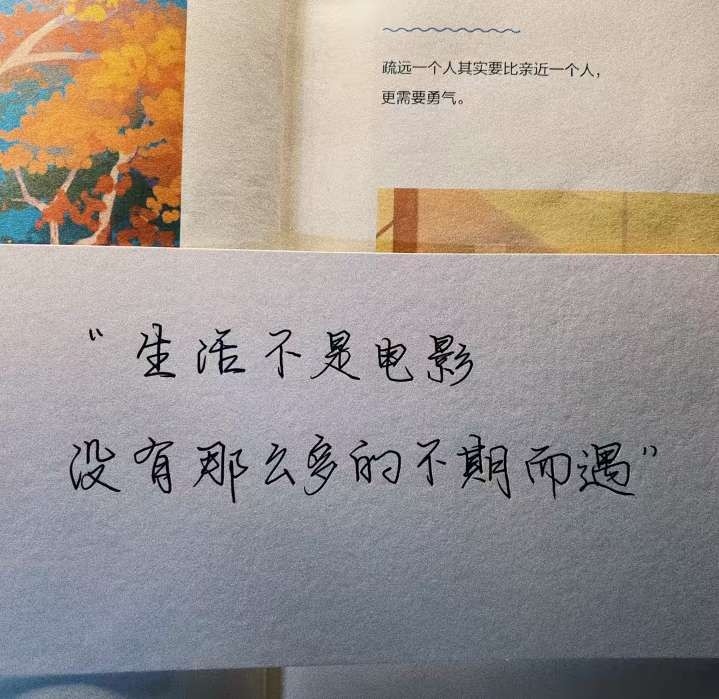 疏远一个人其实要比亲近一个人，
更需要勇气。
“生活不是电影
没有那么多的不期而遇”